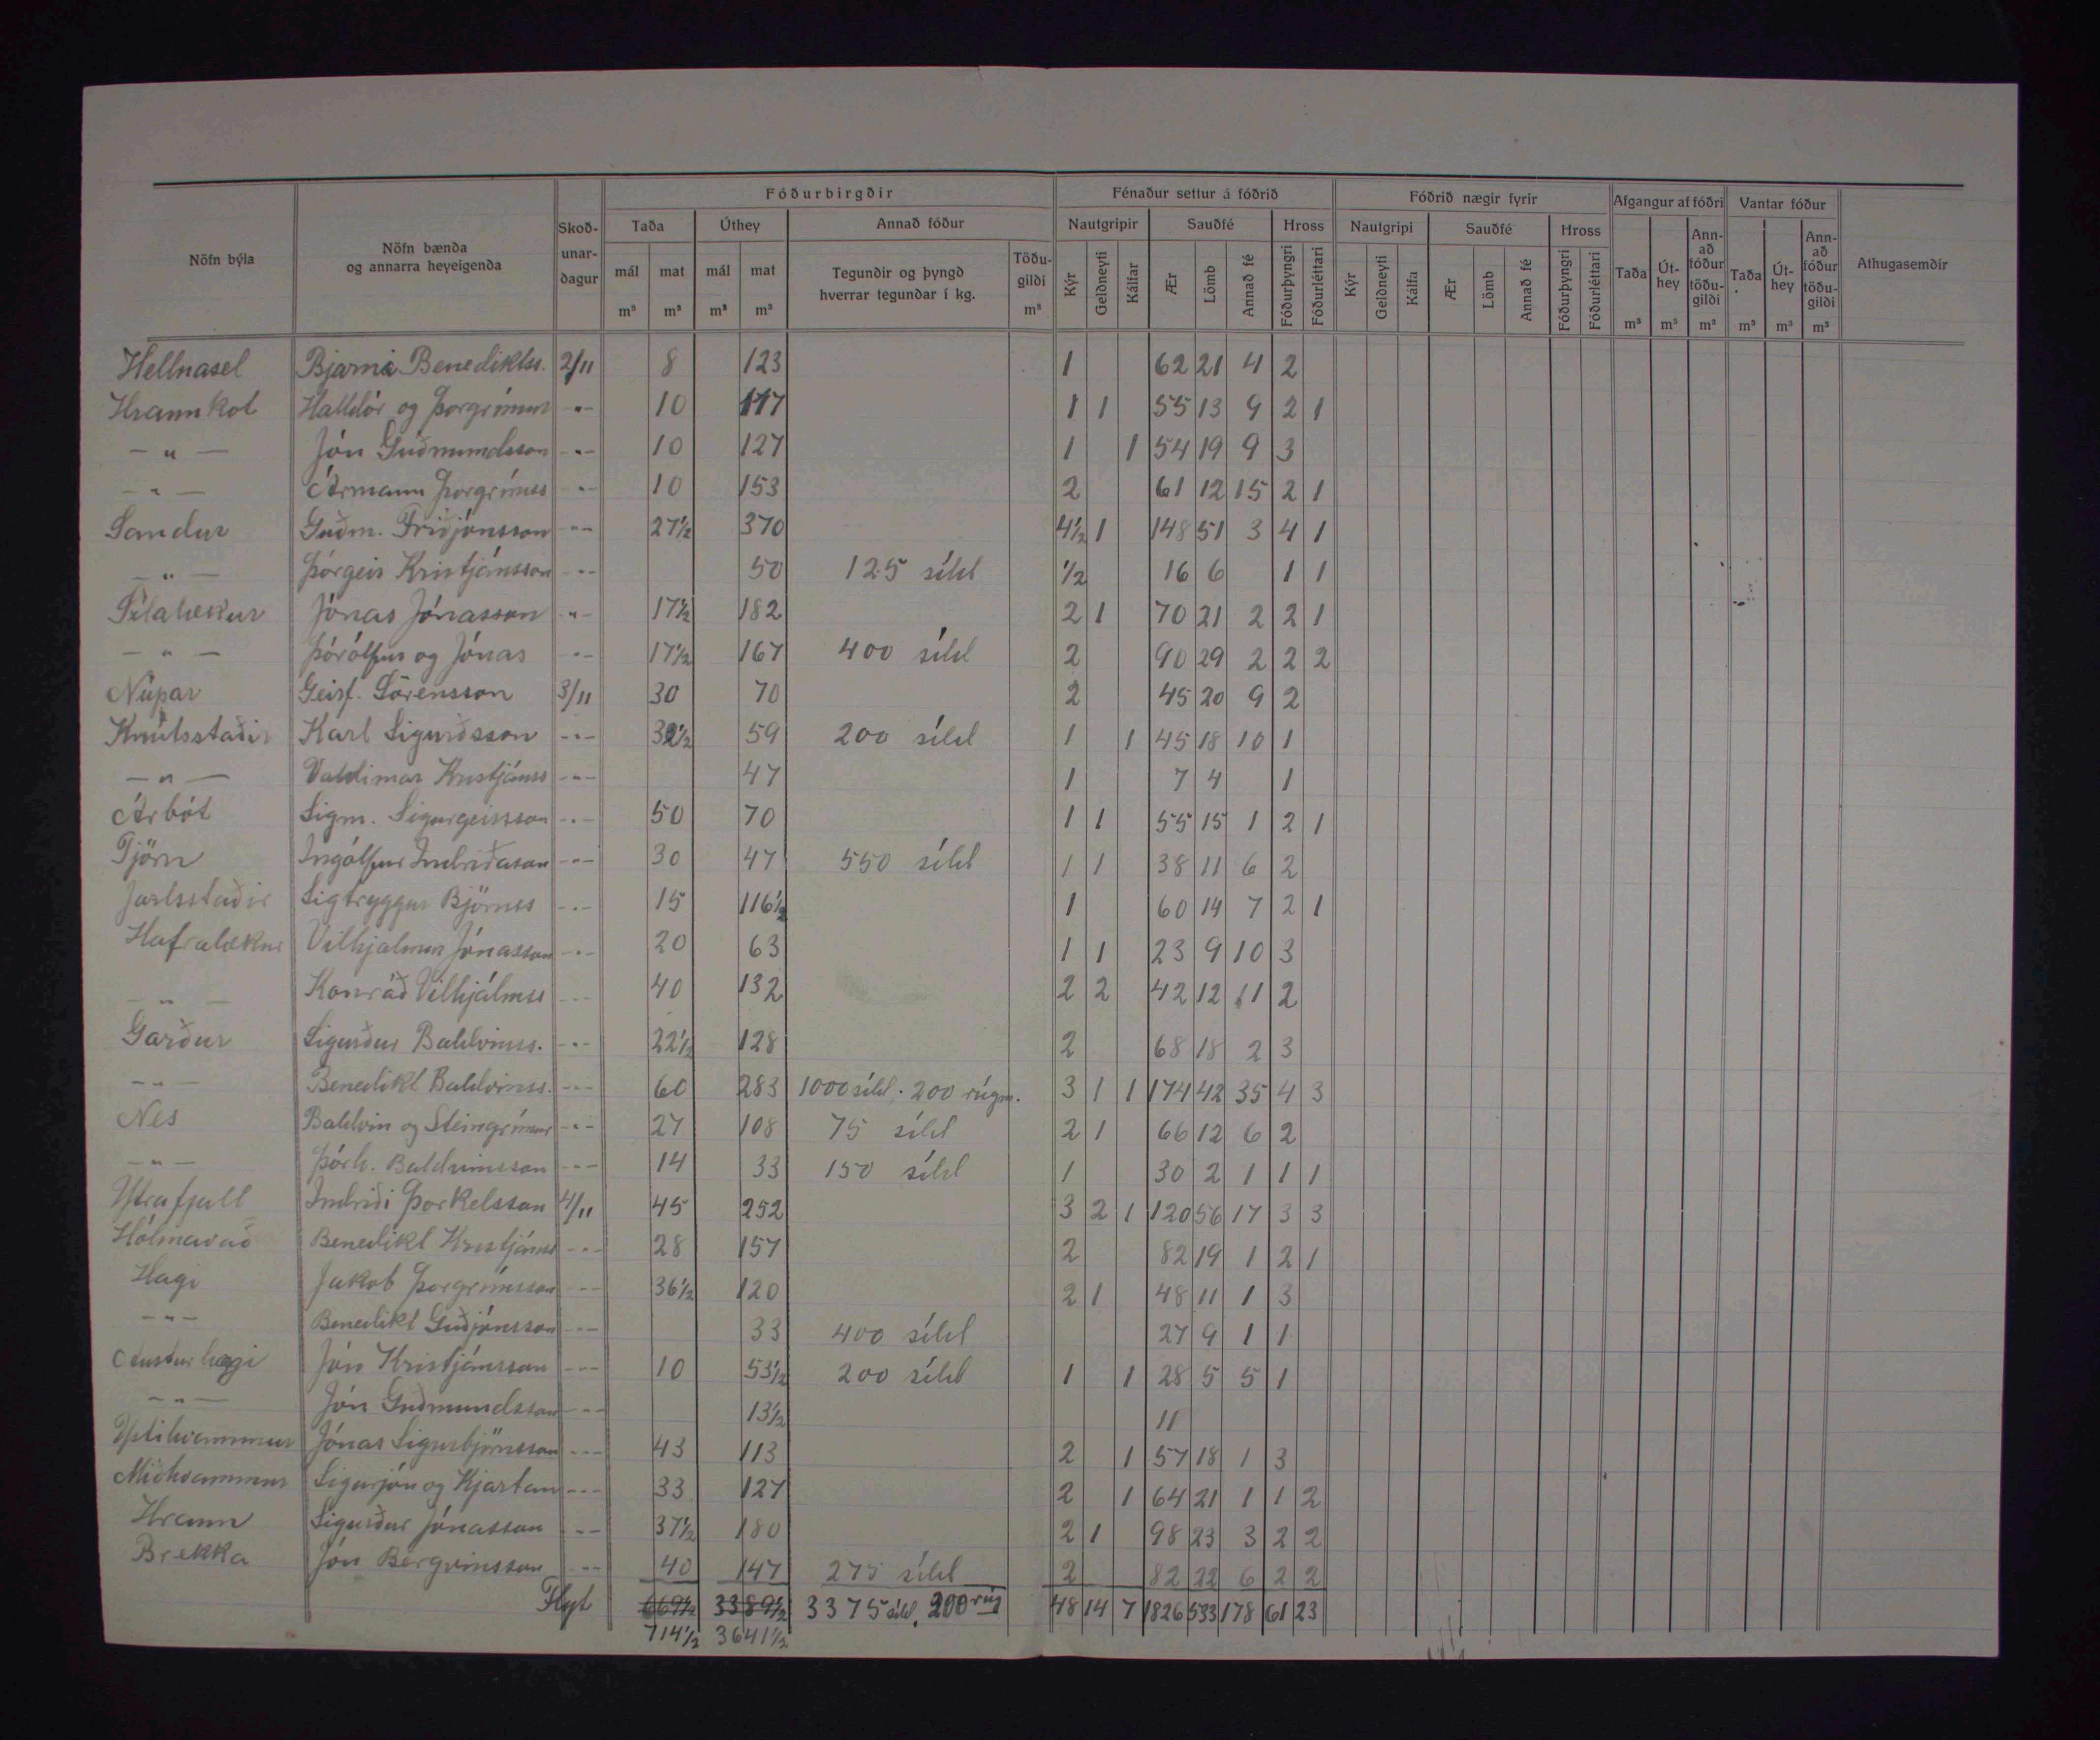 Fóðurbirgðir Fénaður settur á fóðrið Fóðrið nægir fyrir Afgangur af fóðri Vantar fóður
Nöfn býla Nöfn bænda og annarra heyeigenda Skoð-unar-dagur Taða Úthey Annað fóður Nautgripir Sauðfé Hross Nautgripi Sauðfé Hross Athugasemdir
mál m³ mat m³ mál m³ mat m³ Tegundir og þyngd hverrar tegundar í kg. Töðu-gildi m³ Kýr Geldneyti Kálfar Ær Lömb Annað fé Fóðurþyngri Fóðurléttari Kýr Geldneyti Kálfa Ær Lömb Annað fé Fóðurþyngri Fóðurléttari Taða m³ Út-hey m³ Ann-að fóður töðu-gildi m³ Taða m³ Út-hey m³ Ann-að fóður töðu-gildi m³
Hellnasel Bjarni Benediktss. 2/11 8 123 1 62 21 4 2
Hraunkot Halldór og Þorgrímur -"- 10 117 1 1 55 13 9 2 1
-"- Jón Guðmundsson -"- 10 127 1 1 54 19 9 3
-"- Ármann Þorgrímss -"- 10 153 2 61 12 15 2 1
Sandur Guðm. Friðjónsson -"- 27½ 370 4½ 1 148 51 3 4 1
-"- Þórgeir Kristjánsson -"- 50 125 síld ½ 16 6 1 1
Sílalækur Jónas Jónasson -"- 17½ 182 2 1 70 21 2 2 1
-"- Þórólfur og Jónas -"- 17½ 167 400 síld 2 90 29 2 2 2
Núpar Geirf. Sörensson 3/11 30 70 2 45 20 9 2
Knútsstaðir Karl Sigurðsson -"- 32½ 59 200 síld 1 1 45 18 10 1
-"- Valdimar Kristjánss -"- 47 1 7 4 1
Árbót Sigm. Sigurgeirsson -"- 50 70 1 1 55 15 1 2 1
Tjörn Ingólfur Indriðason -"- 30 47 550 síld 1 1 38 11 6 2
Jarlsstaðir Sigtryggur Björnss -"- 15 116½ 1 60 14 7 2 1
Hafralækur Vilhjálmur Jónasson -"- 20 63 1 1 23 9 10 3
-"- Konráð Vilhjálmss -"- 40 132 2 2 42 12 11 2
Garður Sigurður Baldvinss. -"- 22½ 128 2 68 18 2 3
-"- Benedikt Baldvinss. -"- 60 283 1000 síld. 200 rúgm. 3 1 1 174 42 35 4 3
Nes Baldvin og Steingrímur -"- 27 108 75 síld 2 1 66 12 6 2
-"- Þórh. Baldvinsson -"- 14 33 150 síld 1 30 2 1 1 1
Ytrafjall Indriði Þorkelsson 4/11 45 252 3 2 1 120 56 17 3 3
Hólmavað Benedikt Kristjánss -"- 28 157 2 82 19 1 2 1
Hagi Jakob Þorgrímsson -"- 36½ 120 2 1 48 11 1 3
-"- Benedikt Guðjónsson -"- 33 400 síld 27 9 1 1
Austurhagi Jón Kristjánsson -"- 10 53½ 200 síld 1 1 28 5 5 1
-"- Jón Guðmundsson -"- 13½ 11
Ytrihvammur Jónas Sigurbjörnsson -"- 43 113 2 1 57 18 1 3
Miðhvammur Sigurjón og Kjartan -"- 33 127 2 1 64 21 1 1 2
Hraun Sigurður Jónasson -"- 37½ 180 2 1 98 23 3 2 2
Brekka Jón Bergvinsson -"- 40 147 275 síld 2 82 22 6 2 2
Flyt 669½ 3389½ 3375 síld. 200 rúg 48 14 7 1826 533 178 61 23
714½ 3641½